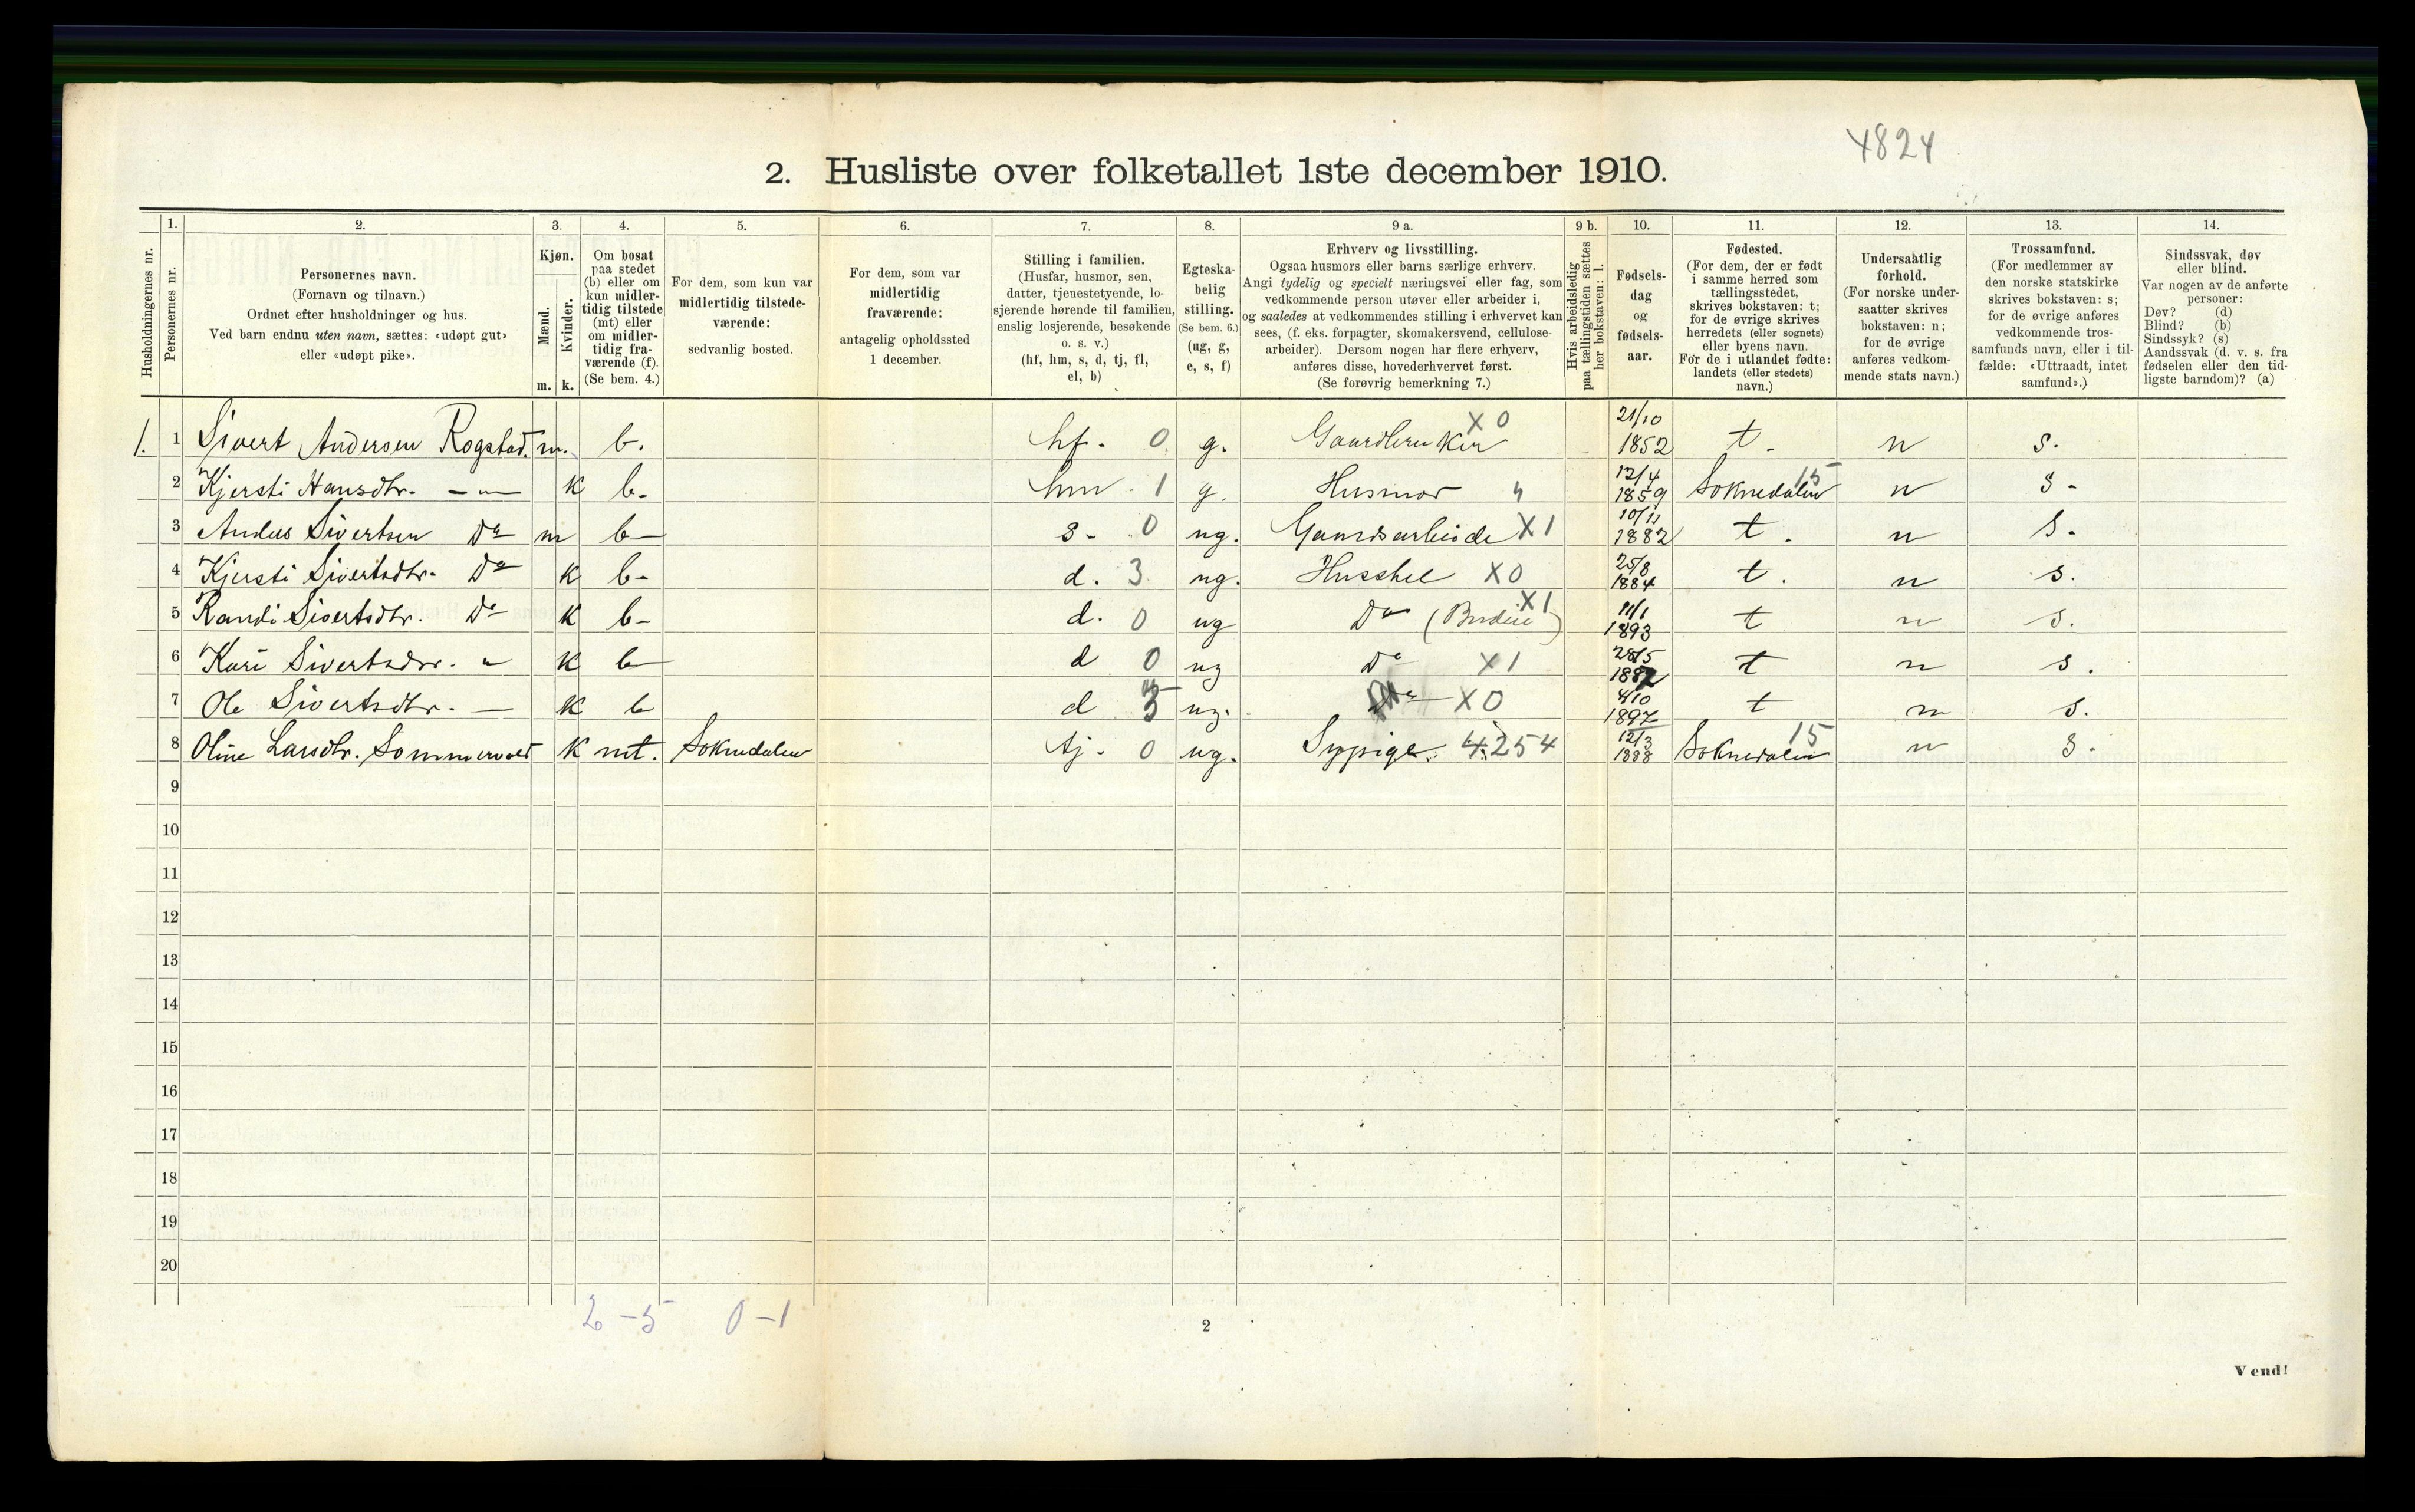 4824
2. Husliste over folketallet 1ste december 1910.
Husholdningernes nr.
1.
Personernes nr.
2.
Personernes navn.
(Fornavn og tilnavn.)
Ordnet efter husholdninger og hus.
Ved barn endnu uten navn, sættes: «udøpt gut»
eller «udøpt pike».
3.
Kjøn.
Mænd.
Kvinder.
m. k.
4.
Om bosat
paa stedet
(b) eller om
kun midler-
tidig tilstede
(mt) eller
om midler-
tidig fra-
værende (f).
(Se bem. 4.)
5.
For dem, som kun var
midlertidig tilstede-
værende:
sedvanlig bosted.
6.
For dem, som var
midlertidig
fraværende:
antagelig opholdssted
1 december.
7.
Stilling i familien.
(Husfar, husmor, søn,
datter, tjenestetyende, lo-
sjerende hørende til familien,
enslig losjerende, besøkende
o. s. v.)
(hf, hm, s, d, tj, fl,
el, b)
8.
Egteska-
belig
stilling.
(Se bem. 6.)
(ug, g,
e, s, f)
9 a.
Erhverv og livsstilling.
Ogsaa husmors eller barns særlige erhverv.
Angi tydelig og specielt næringsvei eller fag, som
vedkommende person utøver eller arbeider i,
og saaledes at vedkommendes stilling i erhvervet kan
sees, (f. eks. forpagter, skomakersvend, cellulose-
arbeider). Dersom nogen har flere erhverv,
anføres disse, hovederhvervet først.
(Se forøvrig bemerkning 7.)
9 b.
Hvis arbeidsledig
paa tællingstiden sættes
her bokstaven: l.
10.
Fødsels-
dag
og
fødsels-
aar.
11.
Fødested.
(For dem, der er født
i samme herred som
tællingsstedet,
skrives bokstaven: t;
for de øvrige skrives
herredets (eller sognets)
eller byens navn.
For de i utlandet fødte:
landets (eller stedets)
navn.)
12.
Undersaatlig
forhold.
(For norske under-
saatter skrives
bokstaven: n;
for de øvrige
anføres vedkom-
mende stats navn.)
13.
Trossamfund.
(For medlemmer av
den norske statskirke
skrives bokstaven: s;
for de øvrige anføres
vedkommende tros-
samfunds navn, eller i til-
fælde: «Uttraadt, intet
samfund».)
14.
Sindssvak, døv
eller blind.
Var nogen av de anførte
personer:
Døv? (d)
Blind? (b)
Sindssyk? (s)
Aandssvak (d. v. s. fra
fødselen eller den tid-
ligste barndom)? (a)
1. 1 Sivert Andersen Rogstad. m. b. hf. 0 g. Gaardbruker X0 21/10 1852 t. n s.
2 Kjersti Hansdtr. — " — k b. hm. 1 g. Husmor 4 12/4 1859 Soknedalen 15 n s.
3 Anders Sivertsen Do m b — s. 0 ug. Gaardsarbeide X1 10/11 1882 t. n s.
4 Kjersti Sivertsdtr. Do k b. d. 3 ug. Husstel X0 25/8 1884 t. n s.
5 Randi Sivertsdtr. Do k b. d. 0 ug Do (Budeie) X1 11/1 1893 t n s.
6 Kari Sivertsdtr. " k b d 0 ug Do X1 28/5 t n s.
7 Ole Sivertsdtr. — k b d ug. X0 4/10 1897 t n s.
8 Oline Larsdtr. Sommervold k mt. Soknedalen tj. 0 ug. Sypige. 4254 12/3 1888 Soknedalen 15 n s.
9
10
11
12
13
14
15
16
17
18
19
20
2 - 5 0 - 1
2
Vend!